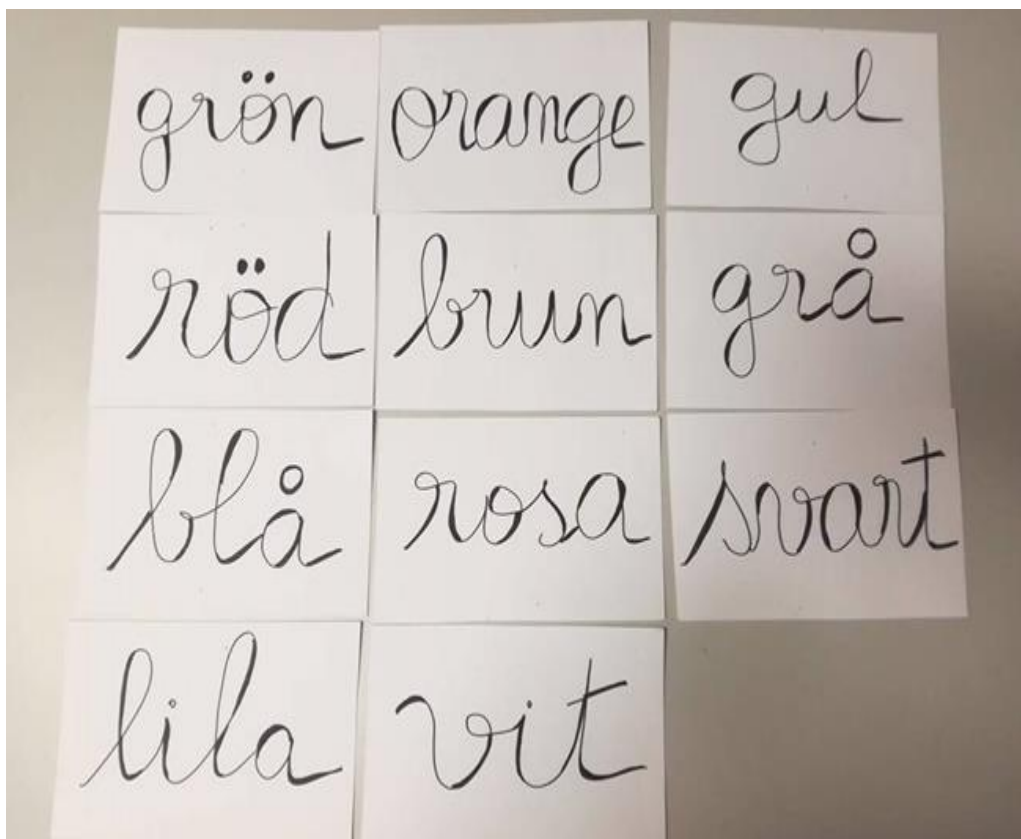 grön orange gul
röd brun grå
blå rosa svart
lila vit